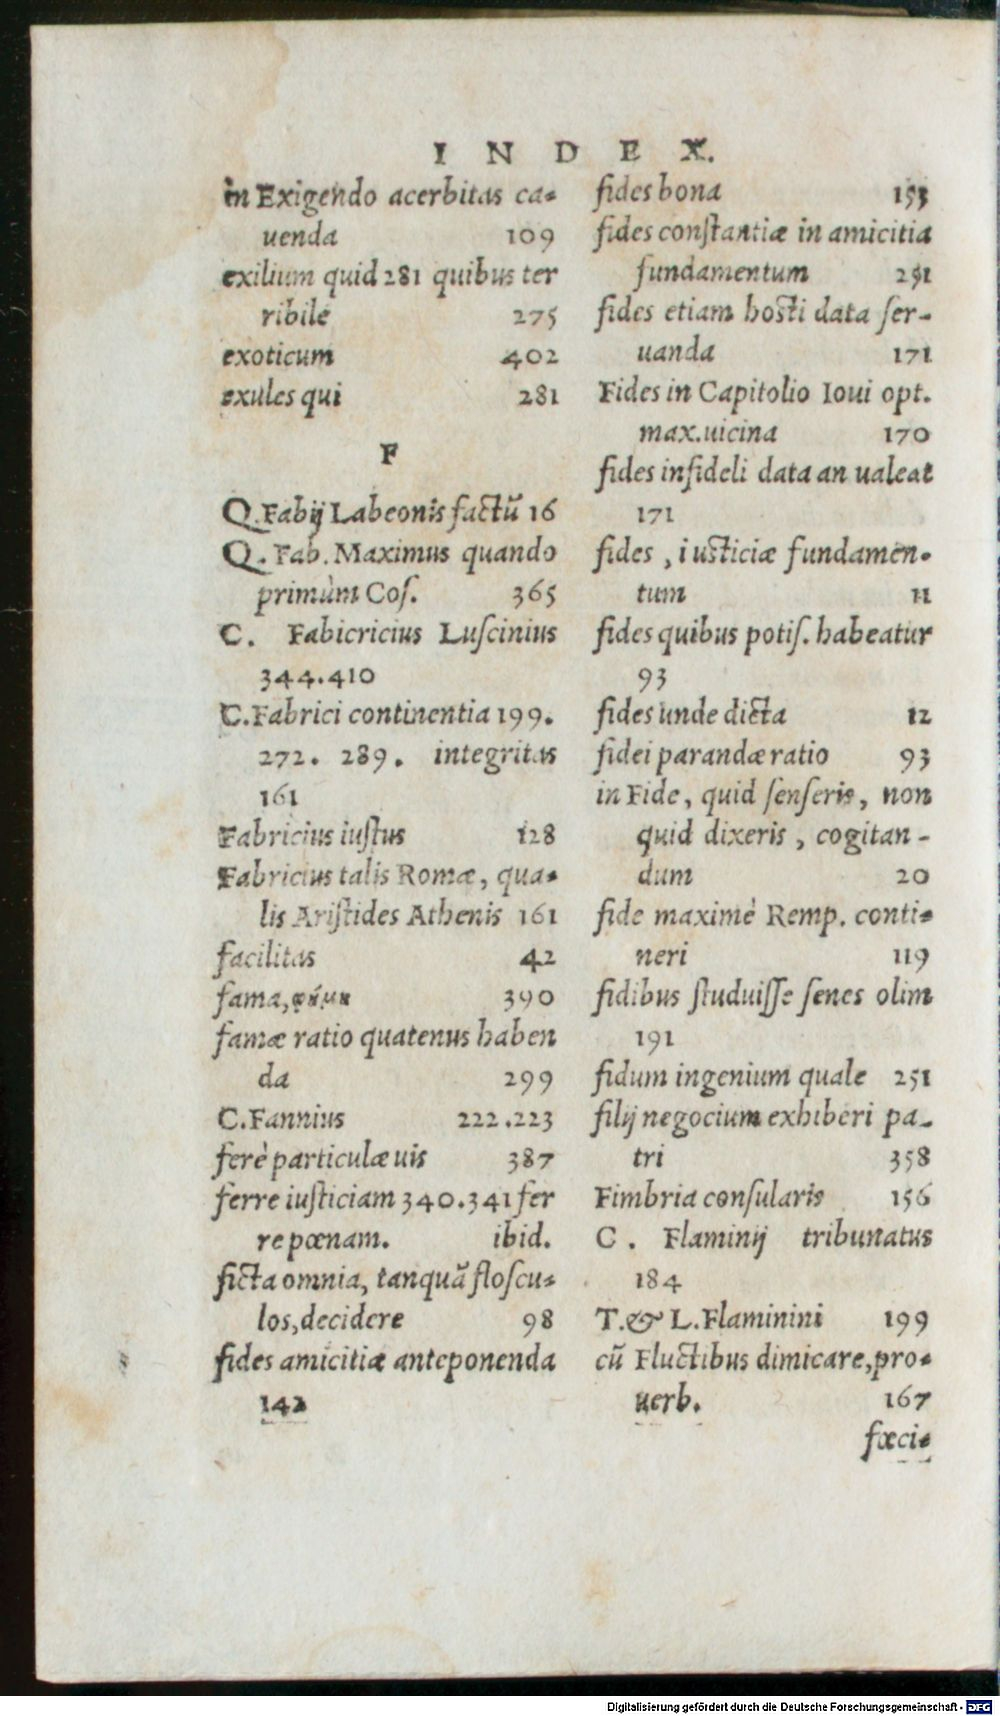 INDEX.
in Exigendo acerbitas ca-
uenda 109
exilium quid 281 quibus ter
ribile 275
exoticum 402
exules qui 281
F
Q. Fabij Labeonis factū 16
Q. Fab. Maximus quando
primùm Cos. 365
C. Fabicricius Luscinius
344.410
C. Fabrici continentia 199.
272. 289. integritas
161
Fabricius iustus 128
Fabricius talis Romæ, qua-
lis Aristides Athenis 161
facilitas 42
fama, φήμη 390
famæ ratio quatenus haben
da 299
C. Fannius 222.223
ferè particulæ uis 387
ferre iusticiam 340.341 fer
re pœnam. ibid.
ficta omnia, tanquā floscu-
los, decidere 98
fides amicitiæ anteponenda
142
fides bona 153
fides constantiæ in amicitia
fundamentum 251
fides etiam hosti data ser-
uanda 171
Fides in Capitolio Ioui opt.
max. uicina 170
fides infideli data an ualeat
171
fides, iusticiæ fundamen-
tum 11
fides quibus potis. habeatur
93
fides unde dicta 12
fidei parandæ ratio 93
in Fide, quid senseris, non
quid dixeris, cogitan-
dum 20
fide maximè Remp. conti-
neri 119
fidibus studuisse senes olim
191
fidum ingenium quale 251
filij negocium exhiberi pa-
tri 358
Fimbria consularis 156
C. Flaminij tribunatus
184
T. & L. Flaminini 199
cū Fluctibus dimicare, pro-
uerb. 167
fœci-
Digitalisierung gefördert durch die Deutsche Forschungsgemeinschaft - DFG